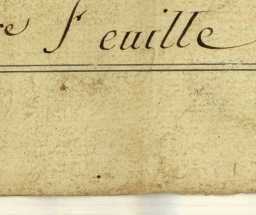 re Feuille